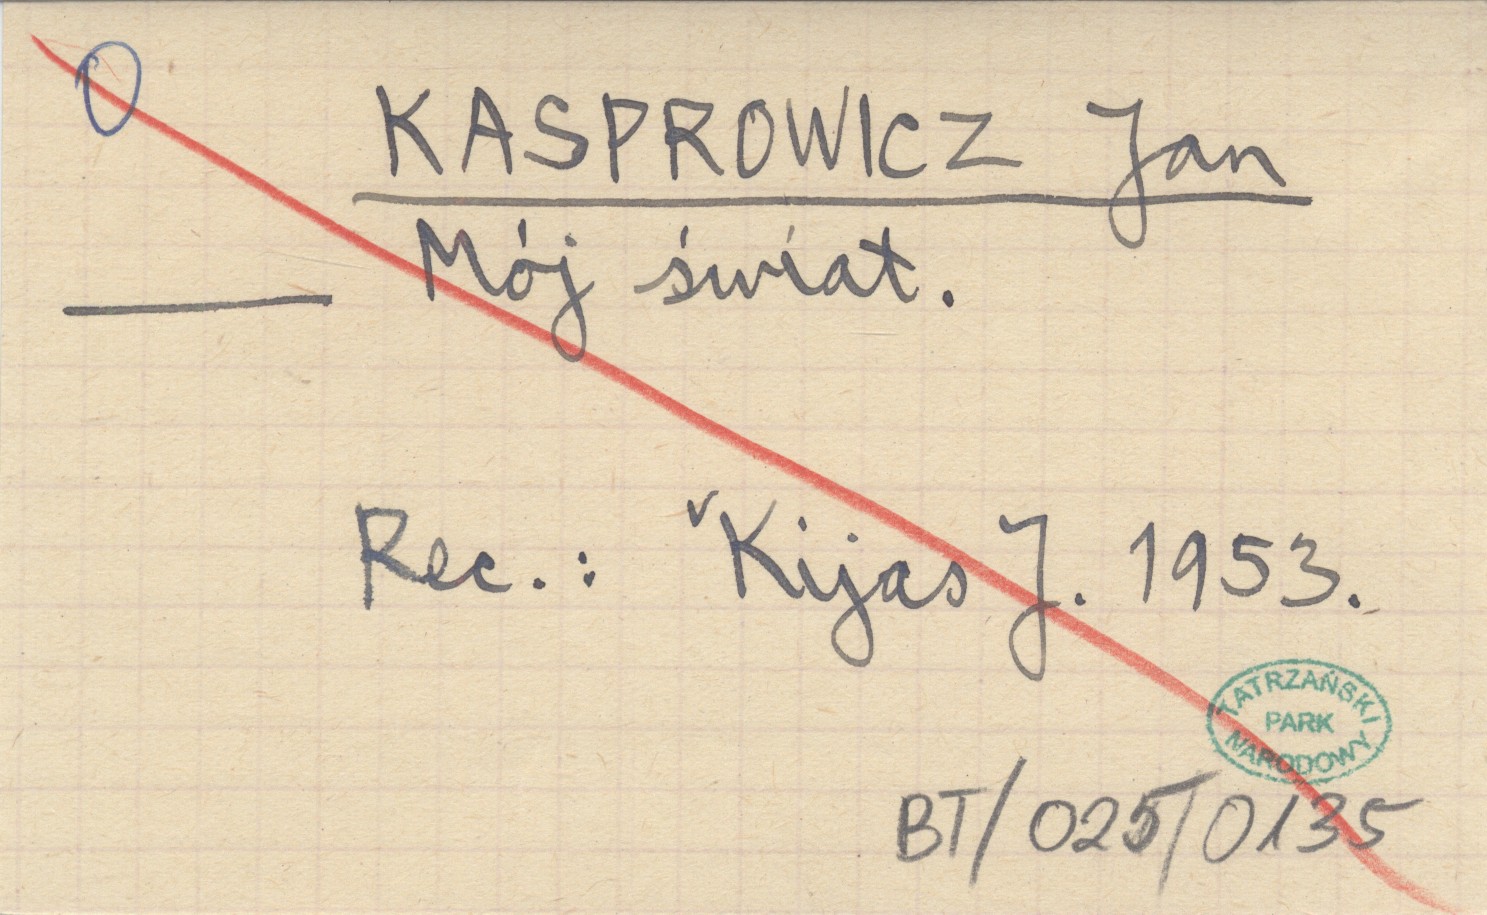 KASPROWICZ Jan
Mój świat.
Rec.: Kijas J. 1953.
TATRZAŃSKI
PARK
NARODOWY
BT/025/0135